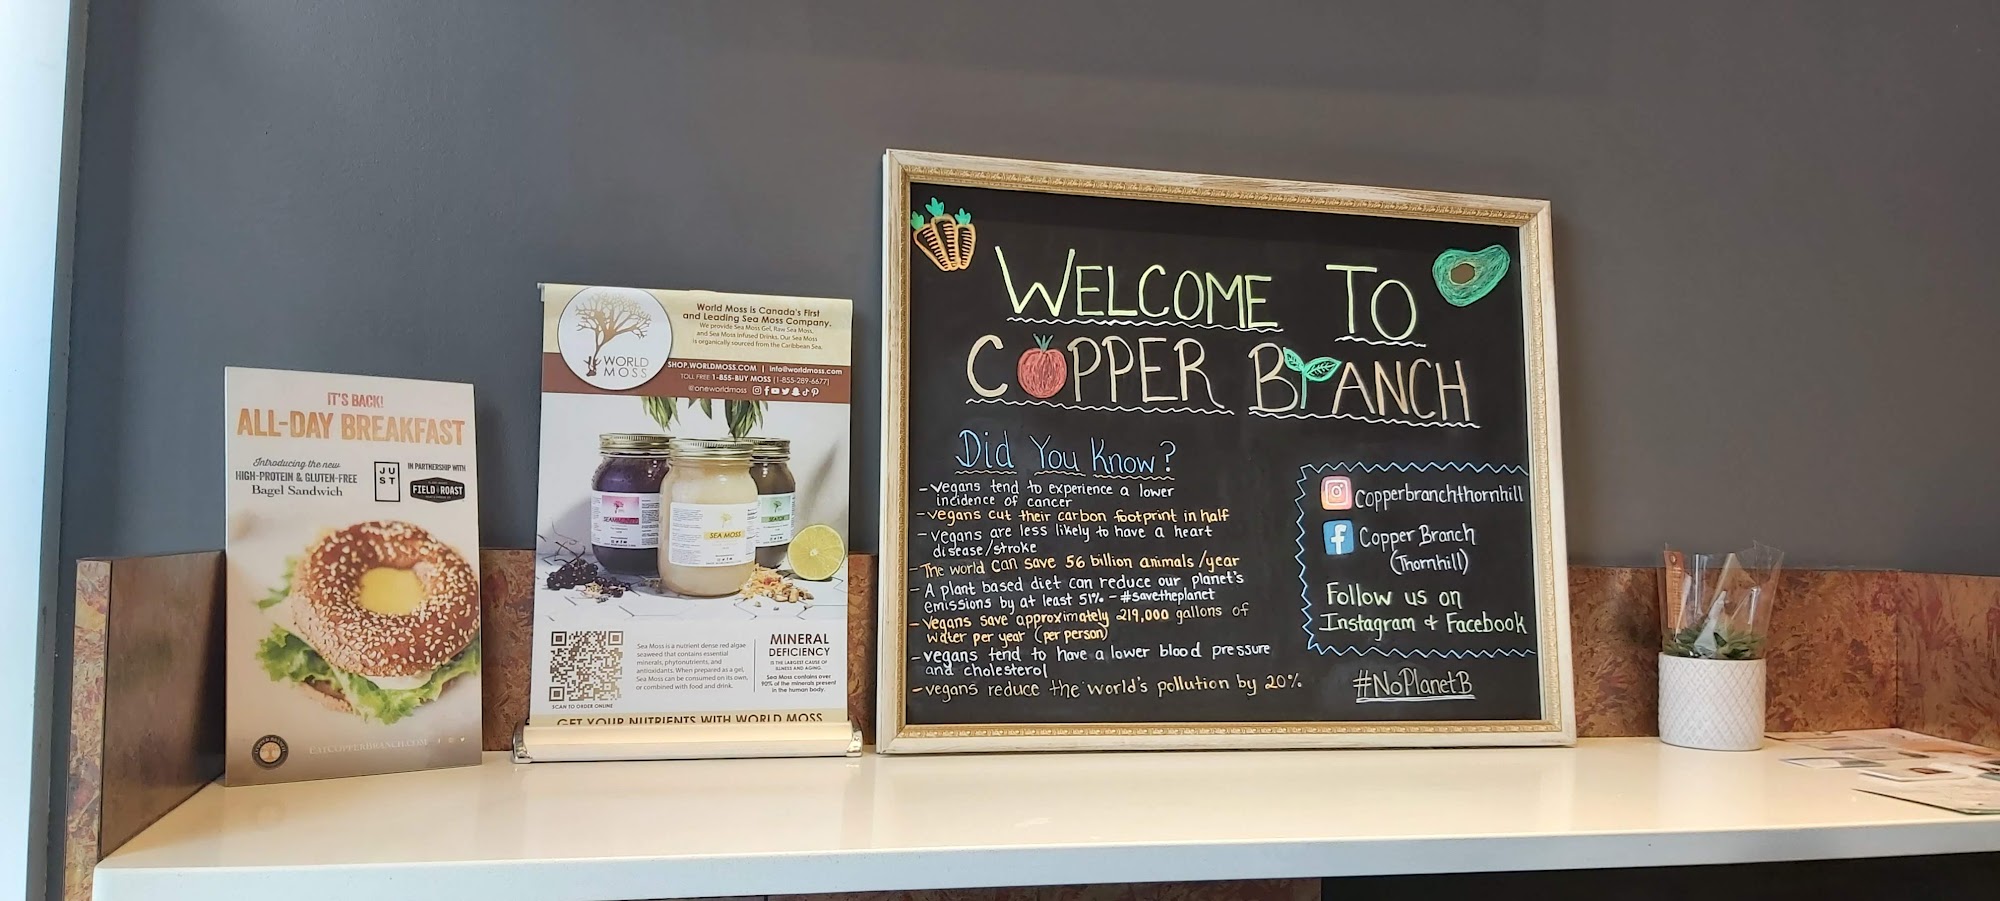 IT'S BACK!
ALL-DAY BREAKFAST
Introducing the new
HIGH-PROTEIN & GLUTEN-FREE
Bagel Sandwich
JUST
IN PARTNERSHIP WITH
FIELD ROAST
EATCOPPERBRANCH.COM
WORLD
MOSS
World Moss is Canada's First
and Leading Sea Moss Company.
We provide Sea Moss Gel, Raw Sea Moss,
and Sea Moss Infused Drinks. Our Sea Moss
is organically sourced from the Caribbean Sea.
SHOP.WORLDMOSS.COM | info@worldmoss.com
TOLL FREE 1-855-BUY MOSS (1-855-289-6677)
@oneworldmoss
SEA MOSS
SCAN TO ORDER ONLINE
Sea Moss is a nutrient dense red algae
seaweed that contains essential
minerals, phytonutrients, and
antioxidants. When prepared as a gel,
Sea Moss can be consumed on its own,
or combined with food and drink.
MINERAL
DEFICIENCY
IS THE LARGEST CAUSE OF
ILLNESS AND AGING.
Sea Moss contains over
90% of the minerals present
in the human body.
GET YOUR NUTRIENTS WITH WORLD MOSS
WELCOME TO
COPPER BRANCH
Did You Know?
- vegans tend to experience a lower
incidence of cancer
- vegans cut their carbon footprint in half
- vegans are less likely to have a heart
disease/stroke
- The world can save 56 billion animals/year
- A plant based diet can reduce our planet's
emissions by at least 51% - #savetheplanet
- vegans save approximately 219,000 gallons of
water per year (per person)
- vegans tend to have a lower blood pressure
and cholesterol
- vegans reduce the world's pollution by 20%
Copperbranchthornhill
Copper Branch
(Thornhill)
Follow us on
Instagram + Facebook
#NoPlanetB